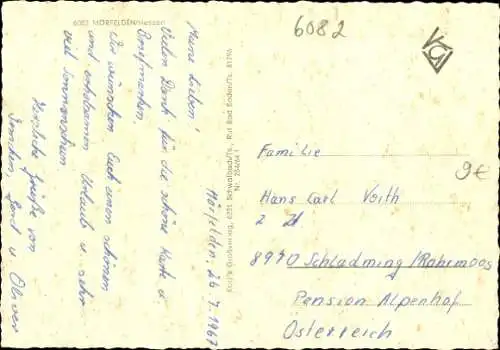 6082 MÖRFELDEN/Hessen
6082
Mörfelden, 26.7.1967
Meine Lieben!
Vielen Dank für die schöne Karte u.
Briefmarken.
Wir wünschen Euch einen schönen
und erholsamen Urlaub u. sehr
viel Sonnenschein
Herzliche Grüße von
Gerd u. Oliver
Schwalbach/Ts., Ruf Bad Soden/Ts.
Familie
Hans Carl Voith
z. Zt
8970 Schladming/Rohrmoos
Pension Alpenhof
Österreich
9€